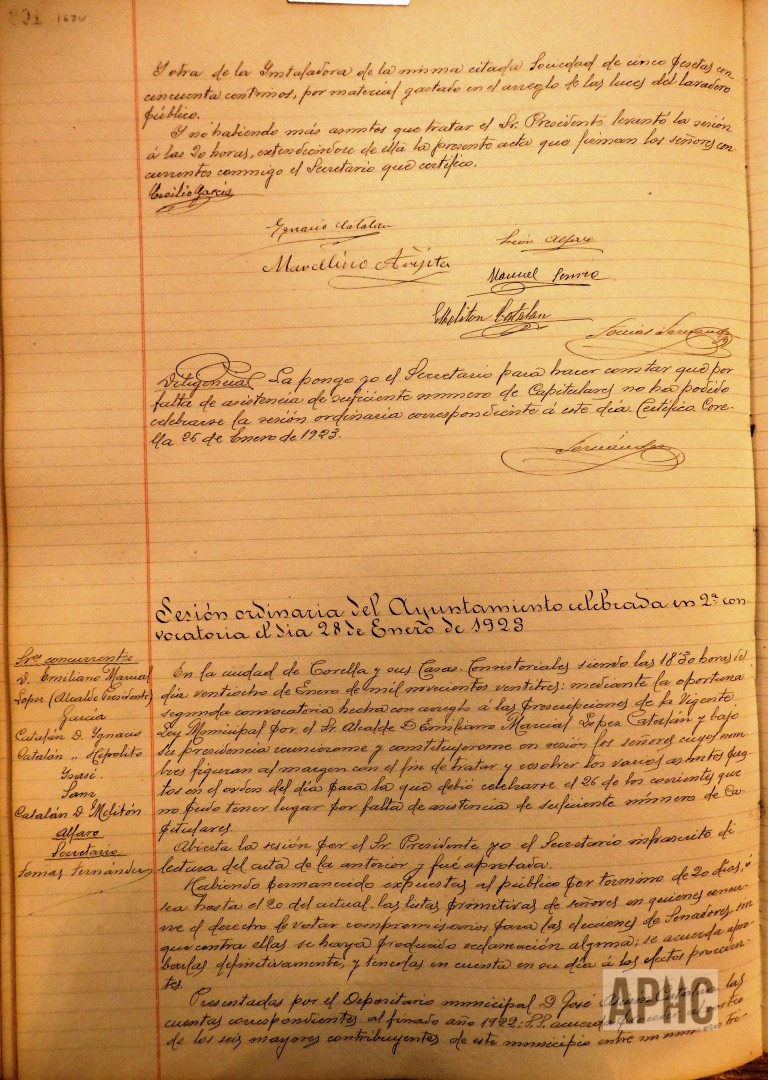 Y otra de la Instaladora de la misma citada Sociedad de cinco pesetas con
cincuenta centimos, por material gastado en el arreglo de las luces del lavadero
público.
Y no habiendo más asuntos que tratar el Sr. Presidente levantó la sesión
á las 20 horas, extendiendose de ella la presente acta que firman los señores con
currentes conmigo el Secretario que certifico.
Cecilio Garcia
Ignacio Catalan
León Alfaro
Marcelino Arizta
Manuel
Meliton Catalan
Tomás Fernandez
Diligencia. La pongo yo el Secretario para hacer constar que por
falta de asistencia de suficiente número de Capitulares no ha podido
celebrarse la sesión ordinaria correspondiente á este dia. Certifico. Core-
lla 26 de Enero de 1923.
Fernández
Sesión ordinaria del Ayuntamiento celebrada en 2ª con
vocatoria el dia 28 de Enero de 1923
Sres concurrentes
D. Emiliano Marcial
Lopez (Alcalde Presidente)
Garcia
Catalán D. Ignacio
Catalán " Hipolito
Sanz
Catalán D. Melitón
Alfaro
Secretario
Tomas Fernández
En la ciudad de Corella y sus Casas Consistoriales siendo las 18'30 horas del
dia ventiocho de Enero de mil novecientos ventitres: mediante la oportuna
segunda convocatoria hecha con arreglo á las prescripciones de la Vigente
Ley Municipal por el Sr. Alcalde D Emiliano Marcial Lopez Catalán y bajo
su presidencia reunieronse y constituyeronse en sesión los señores cuyos nom
bres figuran al margen con el fin de tratar y resolver los varios asuntos pues
tos en el orden del dia para la que debió celebrarse el 26 de los corrientes que
no pudo tener lugar por falta de asistencia de suficiente número de Ca-
pitulares.
Abierta la sesión por el Sr. Presidente yo el Secretario infrascrito di
lectura del acta de la anterior y fué aprobada.
Habiendo permanecido expuestas al público por termino de 20 dias, ó
sea hasta el 20 del actual las listas primitivas de señores en quienes concu-
rre el derecho de votar compromisarios para las elecciones de Senadores, sin
que contra ellas se haya producido reclamación alguna; se acuerda apro-
barlas definitivamente, y tenerlas en cuenta en su dia á los efectos proceden-
tes.
Presentadas por el Depositario municipal D José Catalán las
cuentas correspondientes al finado año 1922; S.S. acuerda
de los seis mayores contribuyentes de este municipio entre un número tri-
APHC